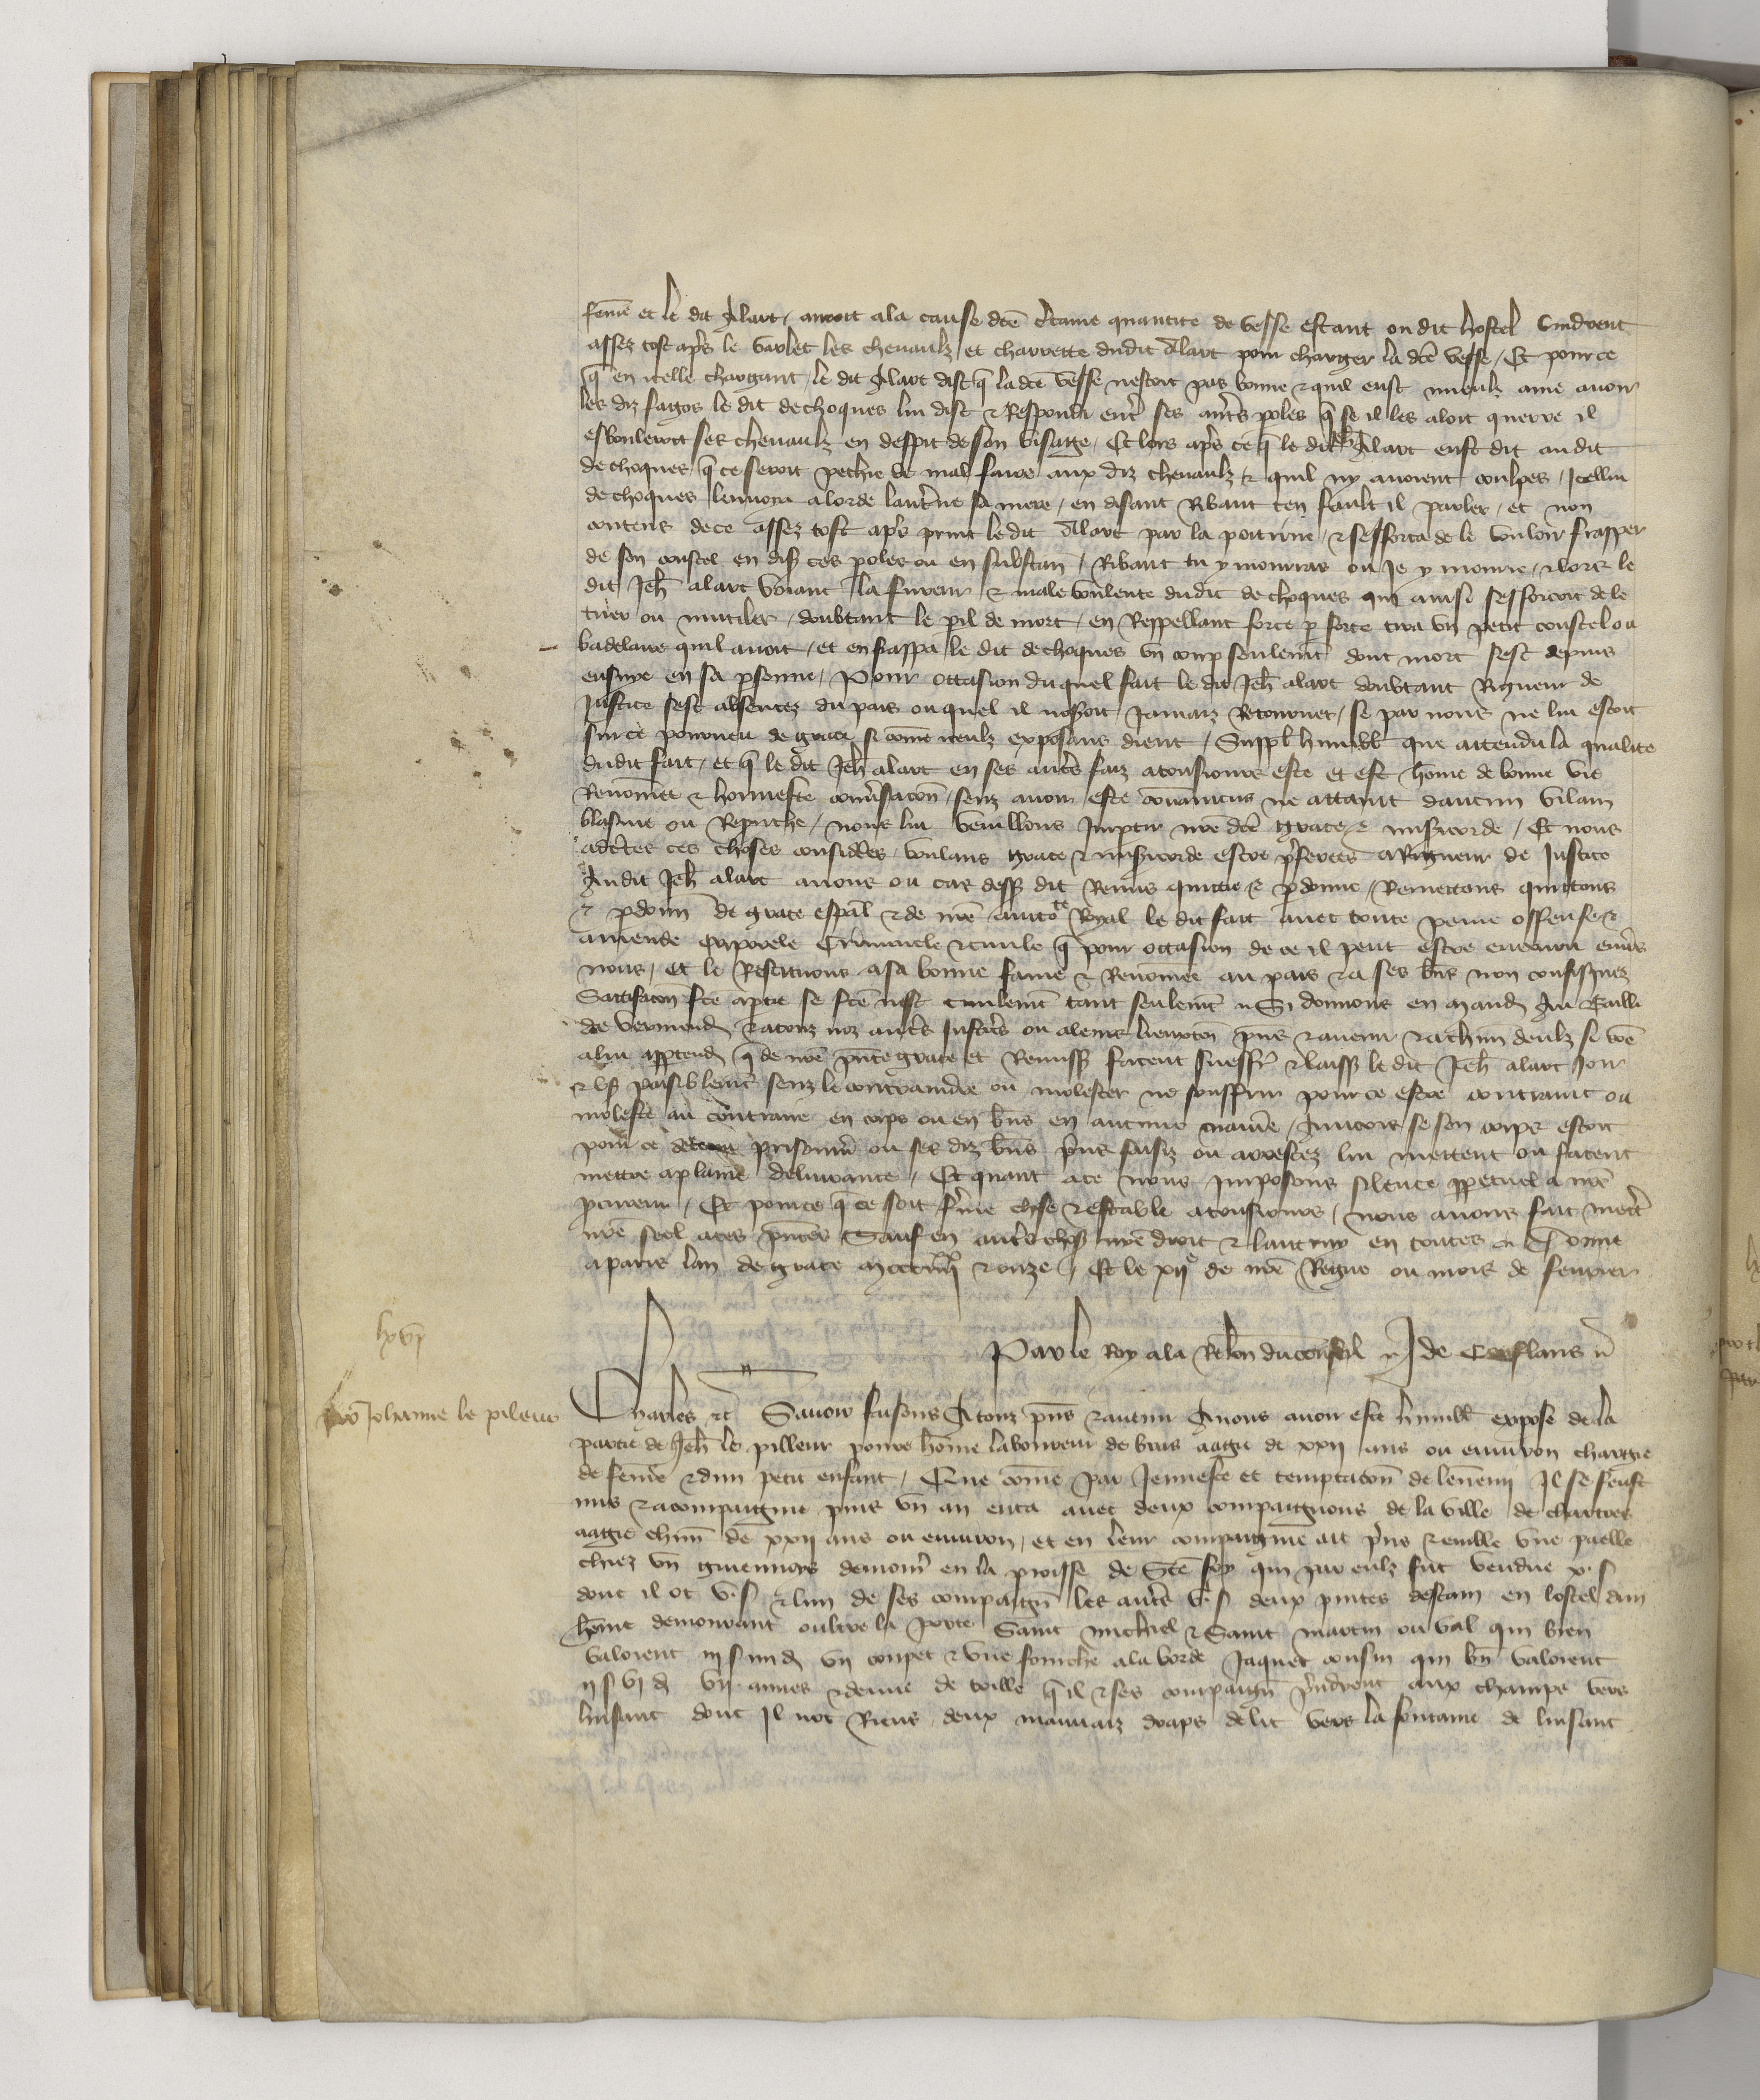 feme et le dit Alart, auoit ala cause dce ctaine quantite de vesse estant ou dit hostel vindrent
assez tost apres le varlet les cheuaulz et charrette dudit Alart pour charger la dce vesse, Et pource
q en icelle chargant, le dit Alart dist q ladce vesse nestoit pas bonne & quil eust mieulx ame auoir
les diz fagos le dit dechoques lui dist & Respondi entre ses autres poles q se il les aloit querre il
esbouleroit ses cheuaulz en despit deson visaige, Et lors apres ce q le dit Jeh Alart eust dit audit
dechoques q ce seroit pechie de mal faire aux diz cheuaulz & quil ny auoient coulpes, Icellui
dechoques lenuoia alorde sa mere, en disant Ribaut ten fault il parler, et non
contens dece assez tost apres print ledit Alart par la poitrine, & sefforca de le vouloir frapper
de son coustel en dis ces poles ou en substan, Ribaut tu y mourras ou Je y mourre, & lors le
dit Jeh alart voiant la fureur & male voulente dudit dechoques qui ainsi sefforcoit de le
tuer ou mutiler, doubtant le pil de mort, en Reppellant force p force tira vn petit coustel ou
badelaire quil auoit, et en frappa le dit dechoques vn cop seulemt dont mort sest depuis
ensuye en sa psonne, Pour occasion duquel fait le dit Jeh alart doubtant Rigueur de
Justice sest absentez du pais ouquel il nosoit Jamaiz Retourner, se par nous ne lui estoit
sur ce pourueu de grace si come iceulz exposans dient, Suppl humbl que attendu la qualite
dudit fait, et q le dit Jeh alart en ses autres faiz atousiours este et est home de bonne vie
Renomee & honneste conusacon, senz auoir este conuaincus ne attaint daucun vilain
blasme ou Reprouche, nous lui veuillons Impartir nre dce grace & misicorde, Et nous
adctes ces choses considees, voulans grace & misicorde estre pferees a Rigueur de Justice
Audit Jeh alart auons ou cas dess dit Remis quittie & pdonne, Remettons quittons
& pdonn de grace espal & de nre aucto te Royal le dit fait auec toute peine offense &
amende corporele Criminele & ciuile q pour occasion de ce il peut estre encouru enuers
nous, et le Restituons asa bonne fame & Renomee au pais & a ses bns non confisquez
Satisfacon fce aptie se fce nest ciuilemt tant seulemt Si donnons en mand Au Bailli
de vermend & atouz noz autres Justics ou aleurs lieuxten pns & auenir & achun deulz si come
alui apptend q de nre pnte grace et Remiss facent sueffr & laiss le dit Jeh alart Joir
& vs paisiblemt senz le contraindre ou molester ne souffrir pource estre contraint ou
moleste au contraire en corps ou en bns en aucune maniere, Aincois se son corps estoit
pour ce detenu prisonn ou ses diz bns prins saisiz ou arrestez lui mettent ou facent
mettre aplaine deliurance, Et quant ace nous Imposons silence ppetuel a nre
procureur, Et pource q ce soit ferme chose & estable atousiours, nous auons fait mettr
nre seel aces pntes Sauf en autre chos nre droit & lautruy en toutes Donne
aparis lan de grace mccciiijxx & onze, Et le xije de nre Regne ou mois de feurier
Par le Roy ala Relon du conseil J de Conflans
lxvj
pro Johanne le pileur
Charles &c Sauoir faisons Atouz pns & auenir Anous auoir este humbl expose dela
partie de Jeh le pilleur poure home laboureur de bras aagie de xxij ans ou enuiron chargie
de feme & dun petit enfant, Que come par Jeunesse et temptacon de lenemi Il se feust
mis & acompaignie puis vn an enca auec deux compaignons de la ville de chartres
aagie chun de xxij ans ou enuiron, et en leur compaignie ait prins & emble vne paelle
chiez vn demour en la proisse de Ste foy qui par eulz fut vendue x. s
dont il ot v. s & lun de ses compaign les autres v. s deux pintes destain en lostel dun
home demourant oultre la porte Saint michiel & Saint martin ou val qui bien
valoient iij s iiij d vn coupet & vne fourche ala borde Jaquet cousin qui bn valoient
ij s vj d vij. aunes & demie de toille q il & ses compaign prindrent aux champs vers
luisant dont Il not Riens, deux mauuaiz draps delit vers la fontaine de luisant